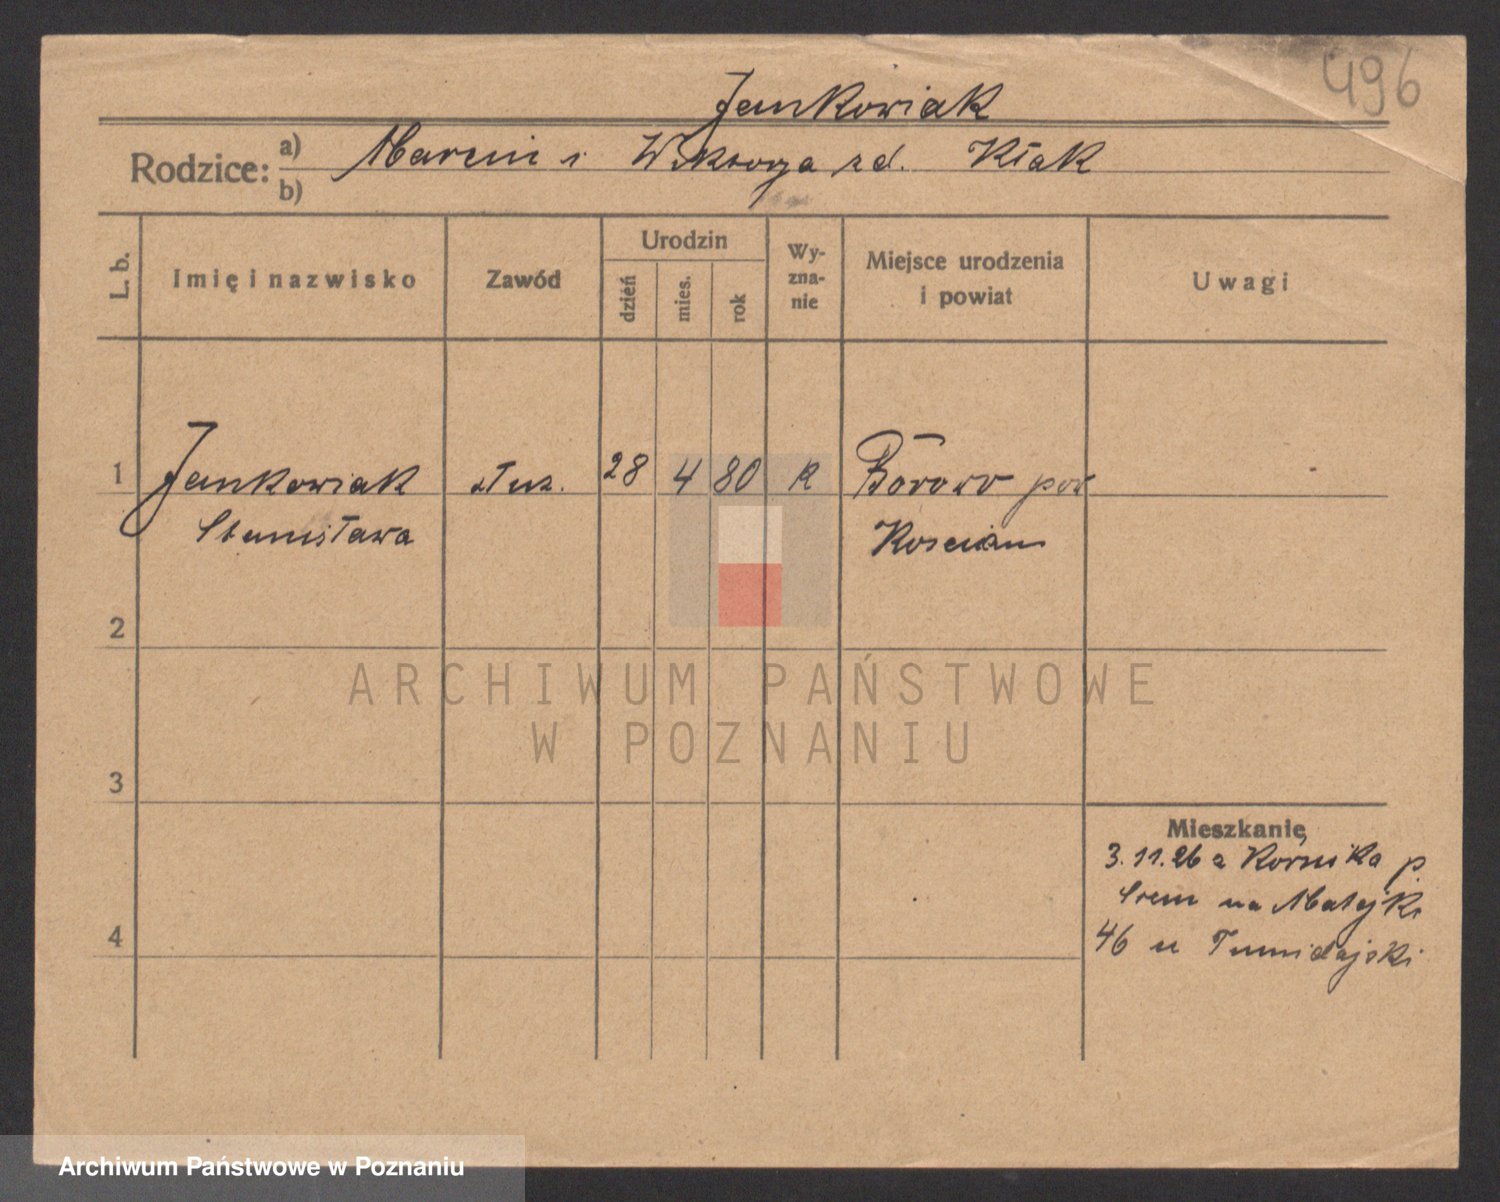 496
Jankowiak
Rodzice: a) Marcin i Wiktorya zd. Kłak
b)
L. b. Imię i nazwisko Zawód Urodzin dzień mies. rok Wy-zna-nie Miejsce urodzenia i powiat Uwagi
1 Jankowiak służ. 28 4 80 k Borowo pow
Stanisława Kościan
2
3
4
Mieszkanie
3.11.26 z Kórnika p.
Śrem na Matejki
46 u Tumidajski
ARCHIWUM PAŃSTWOWE
W POZNANIU
Archiwum Państwowe w Poznaniu